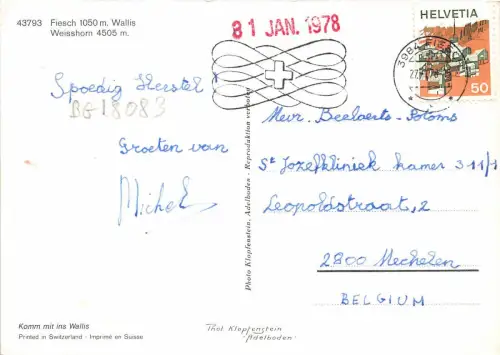 43793 Fiesch 1050 m. Wallis
Weisshorn 4505 m.
31 JAN. 1978
HELVETIA
3984 FIESCH
50
Spoedig Herstel
BE18083
Groeten van
Michel
Photo Klopfenstein, Adelboden - Reproduktion verboten
Mevr. Beelaerts-Storms
St Jozefkliniek kamer 311/1
Leopoldstraat, 2
2800 Mechelen
BELGIUM
Komm mit ins Wallis
Printed in Switzerland - Imprimé en Suisse
Phot Klopfenstein
Adelboden